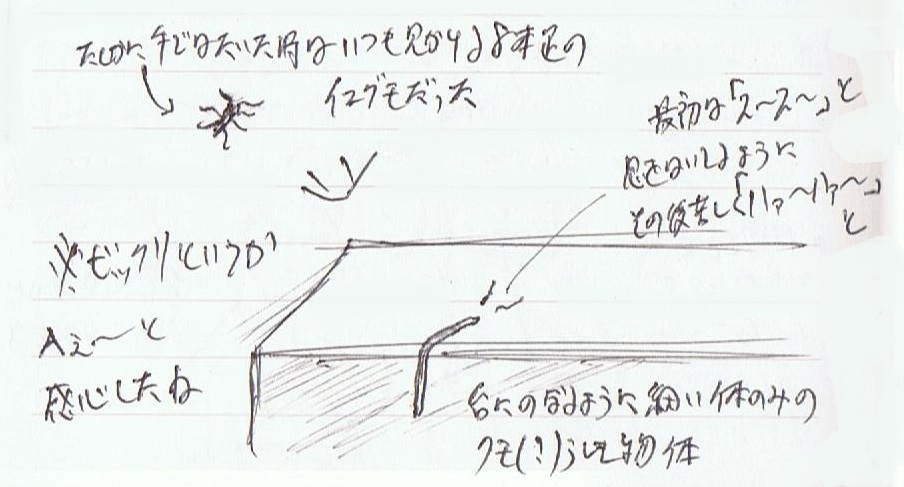 たしかに手ではたいた時はいつも見かける8本足の
イエグモだった
最初は「スースー」と
息をはいてるように
その後苦しく「ハァ〜ハァ〜」
と
※ビックリというか
へぇ〜と
感心したね
台にのぼるように細い体のみの
クモ(?)らしき物体